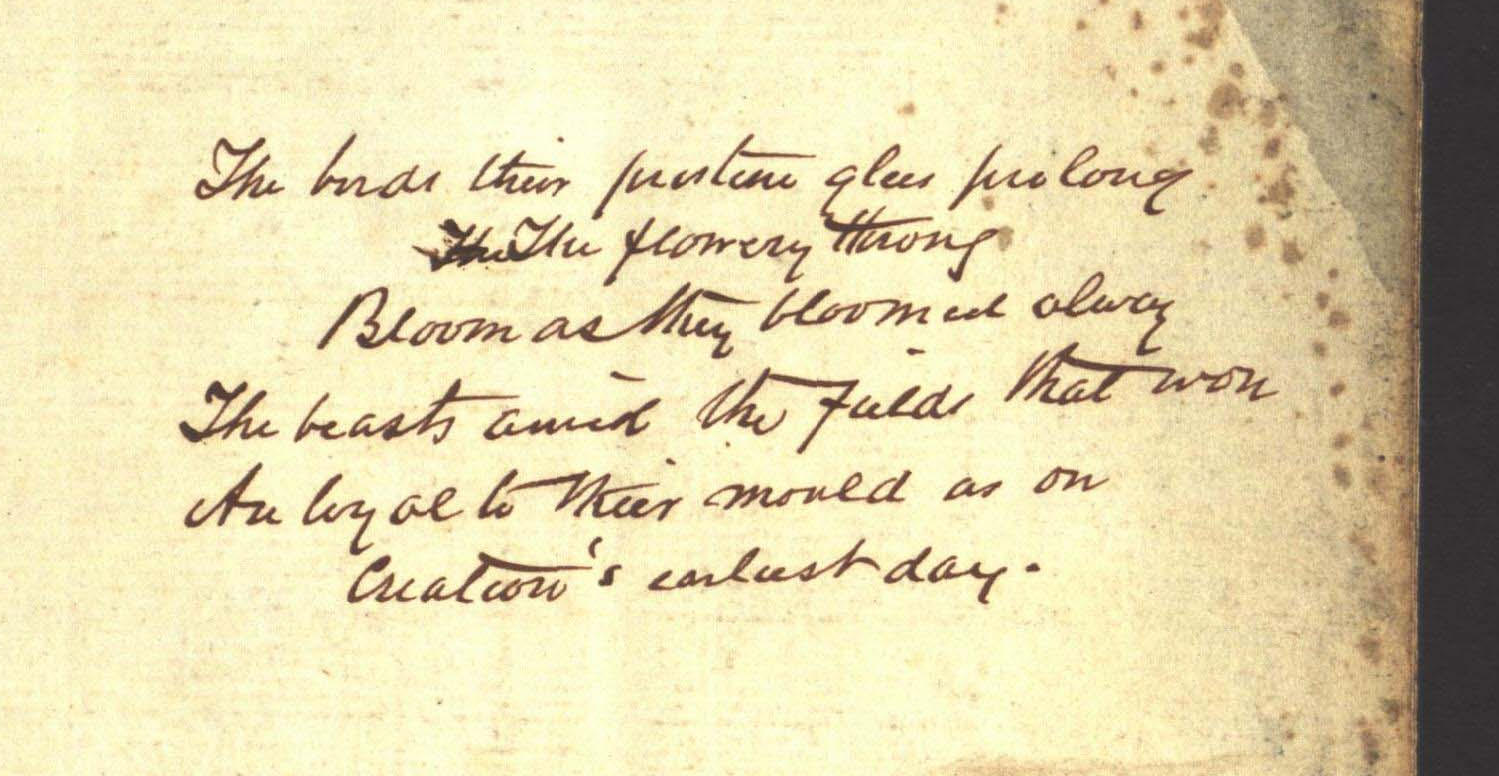 The birds their pristine glees prolong
The The flowery throng
Bloom as they bloomed alway
The beasts amid the fields that won
Are loyal to their mould as on
Creation's earliest day.